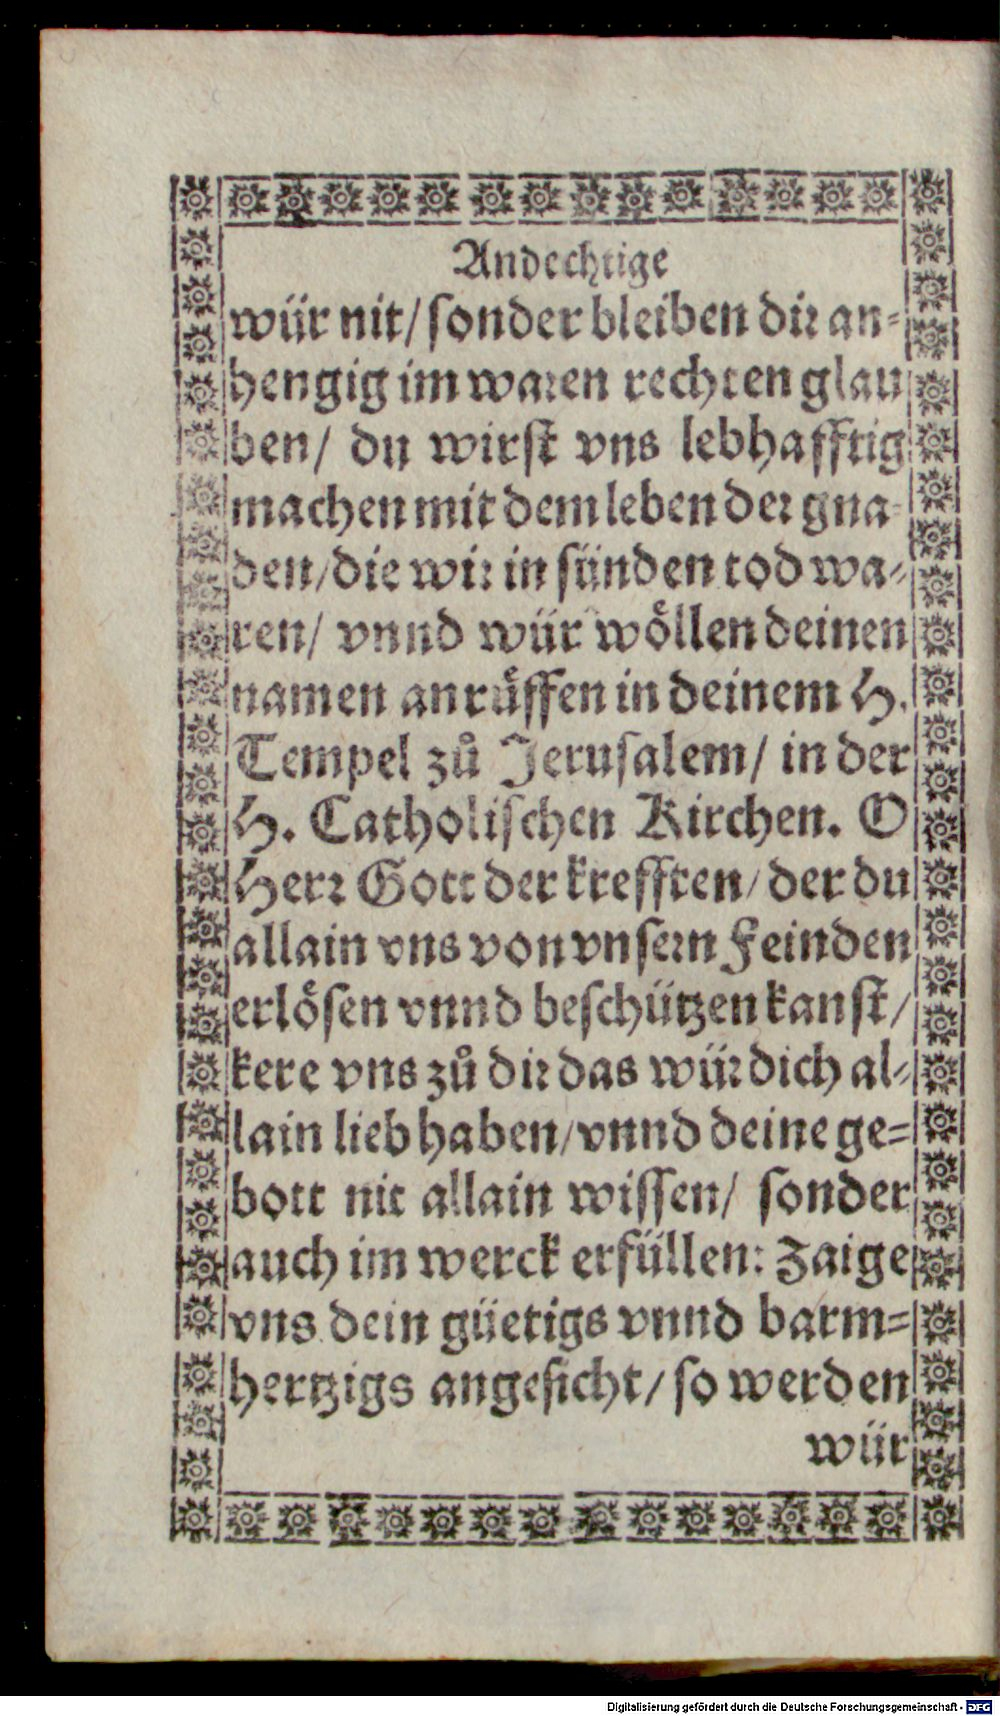 Andechtige
wür nit/ sonder bleiben dir an=
hengig im waren rechten glau
ben/ du wirst vns lebhafftig
machen mit dem leben der gna=
den/ die wir in sünden tod wa=
ren/ vnnd wür wöllen deinen
namen anrüffen in deinem H.
Tempel zů Jerusalem/ in der
H. Catholischen Kirchen. O
Herr Gott der krefften/ der du
allain vns von vnsern Feinden
erlösen vnnd beschützen kanst/
kere vns zů dir das wür dich al=
lain lieb haben/ vnnd deine ge=
bott nit allain wissen/ sonder
auch im werck erfüllen: Zaige
vns dein güetigs vnnd barm=
hertzigs angesicht/ so werden
wür
Digitalisierung gefördert durch die Deutsche Forschungsgemeinschaft - DFG